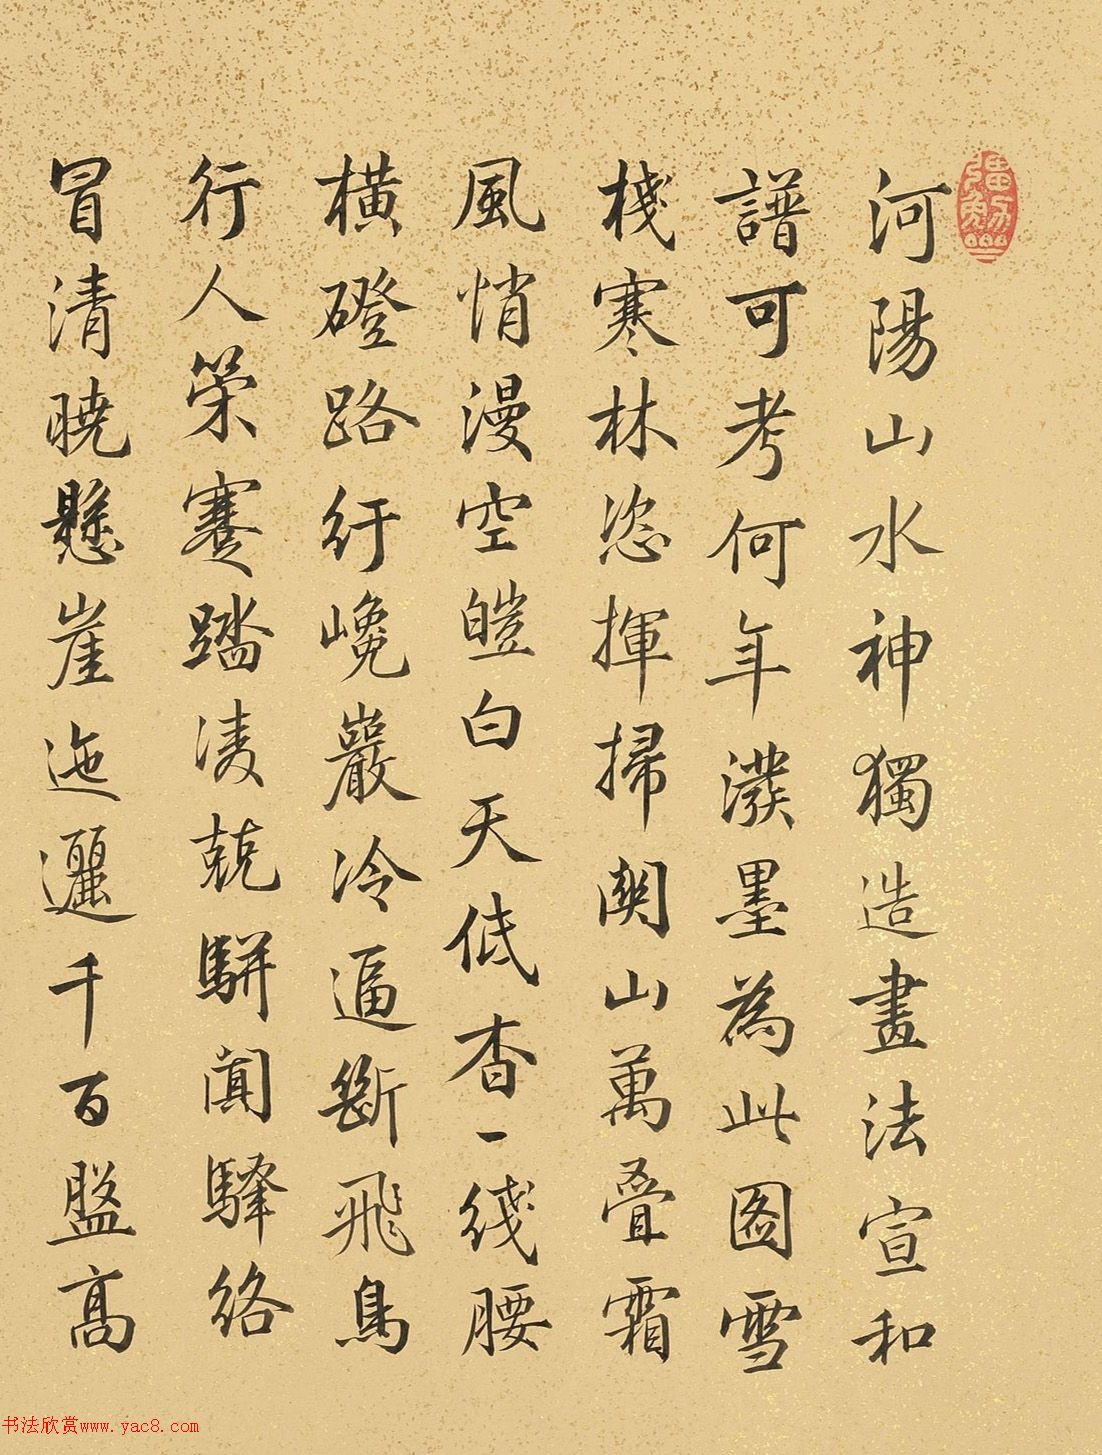 河陽山水神獨造畫法宣和
譜可考何年潑墨為此圖雪
棧寒林恣揮掃關山萬疊霜
風悄漫空皚白天低杳一綫腰
橫磴路紆巉巖冷逼斷飛鳥
行人策蹇踏凌兢駢闐驛絡
冒清曉懸崖迤邐千百盤高
书法欣赏www.yac8.com